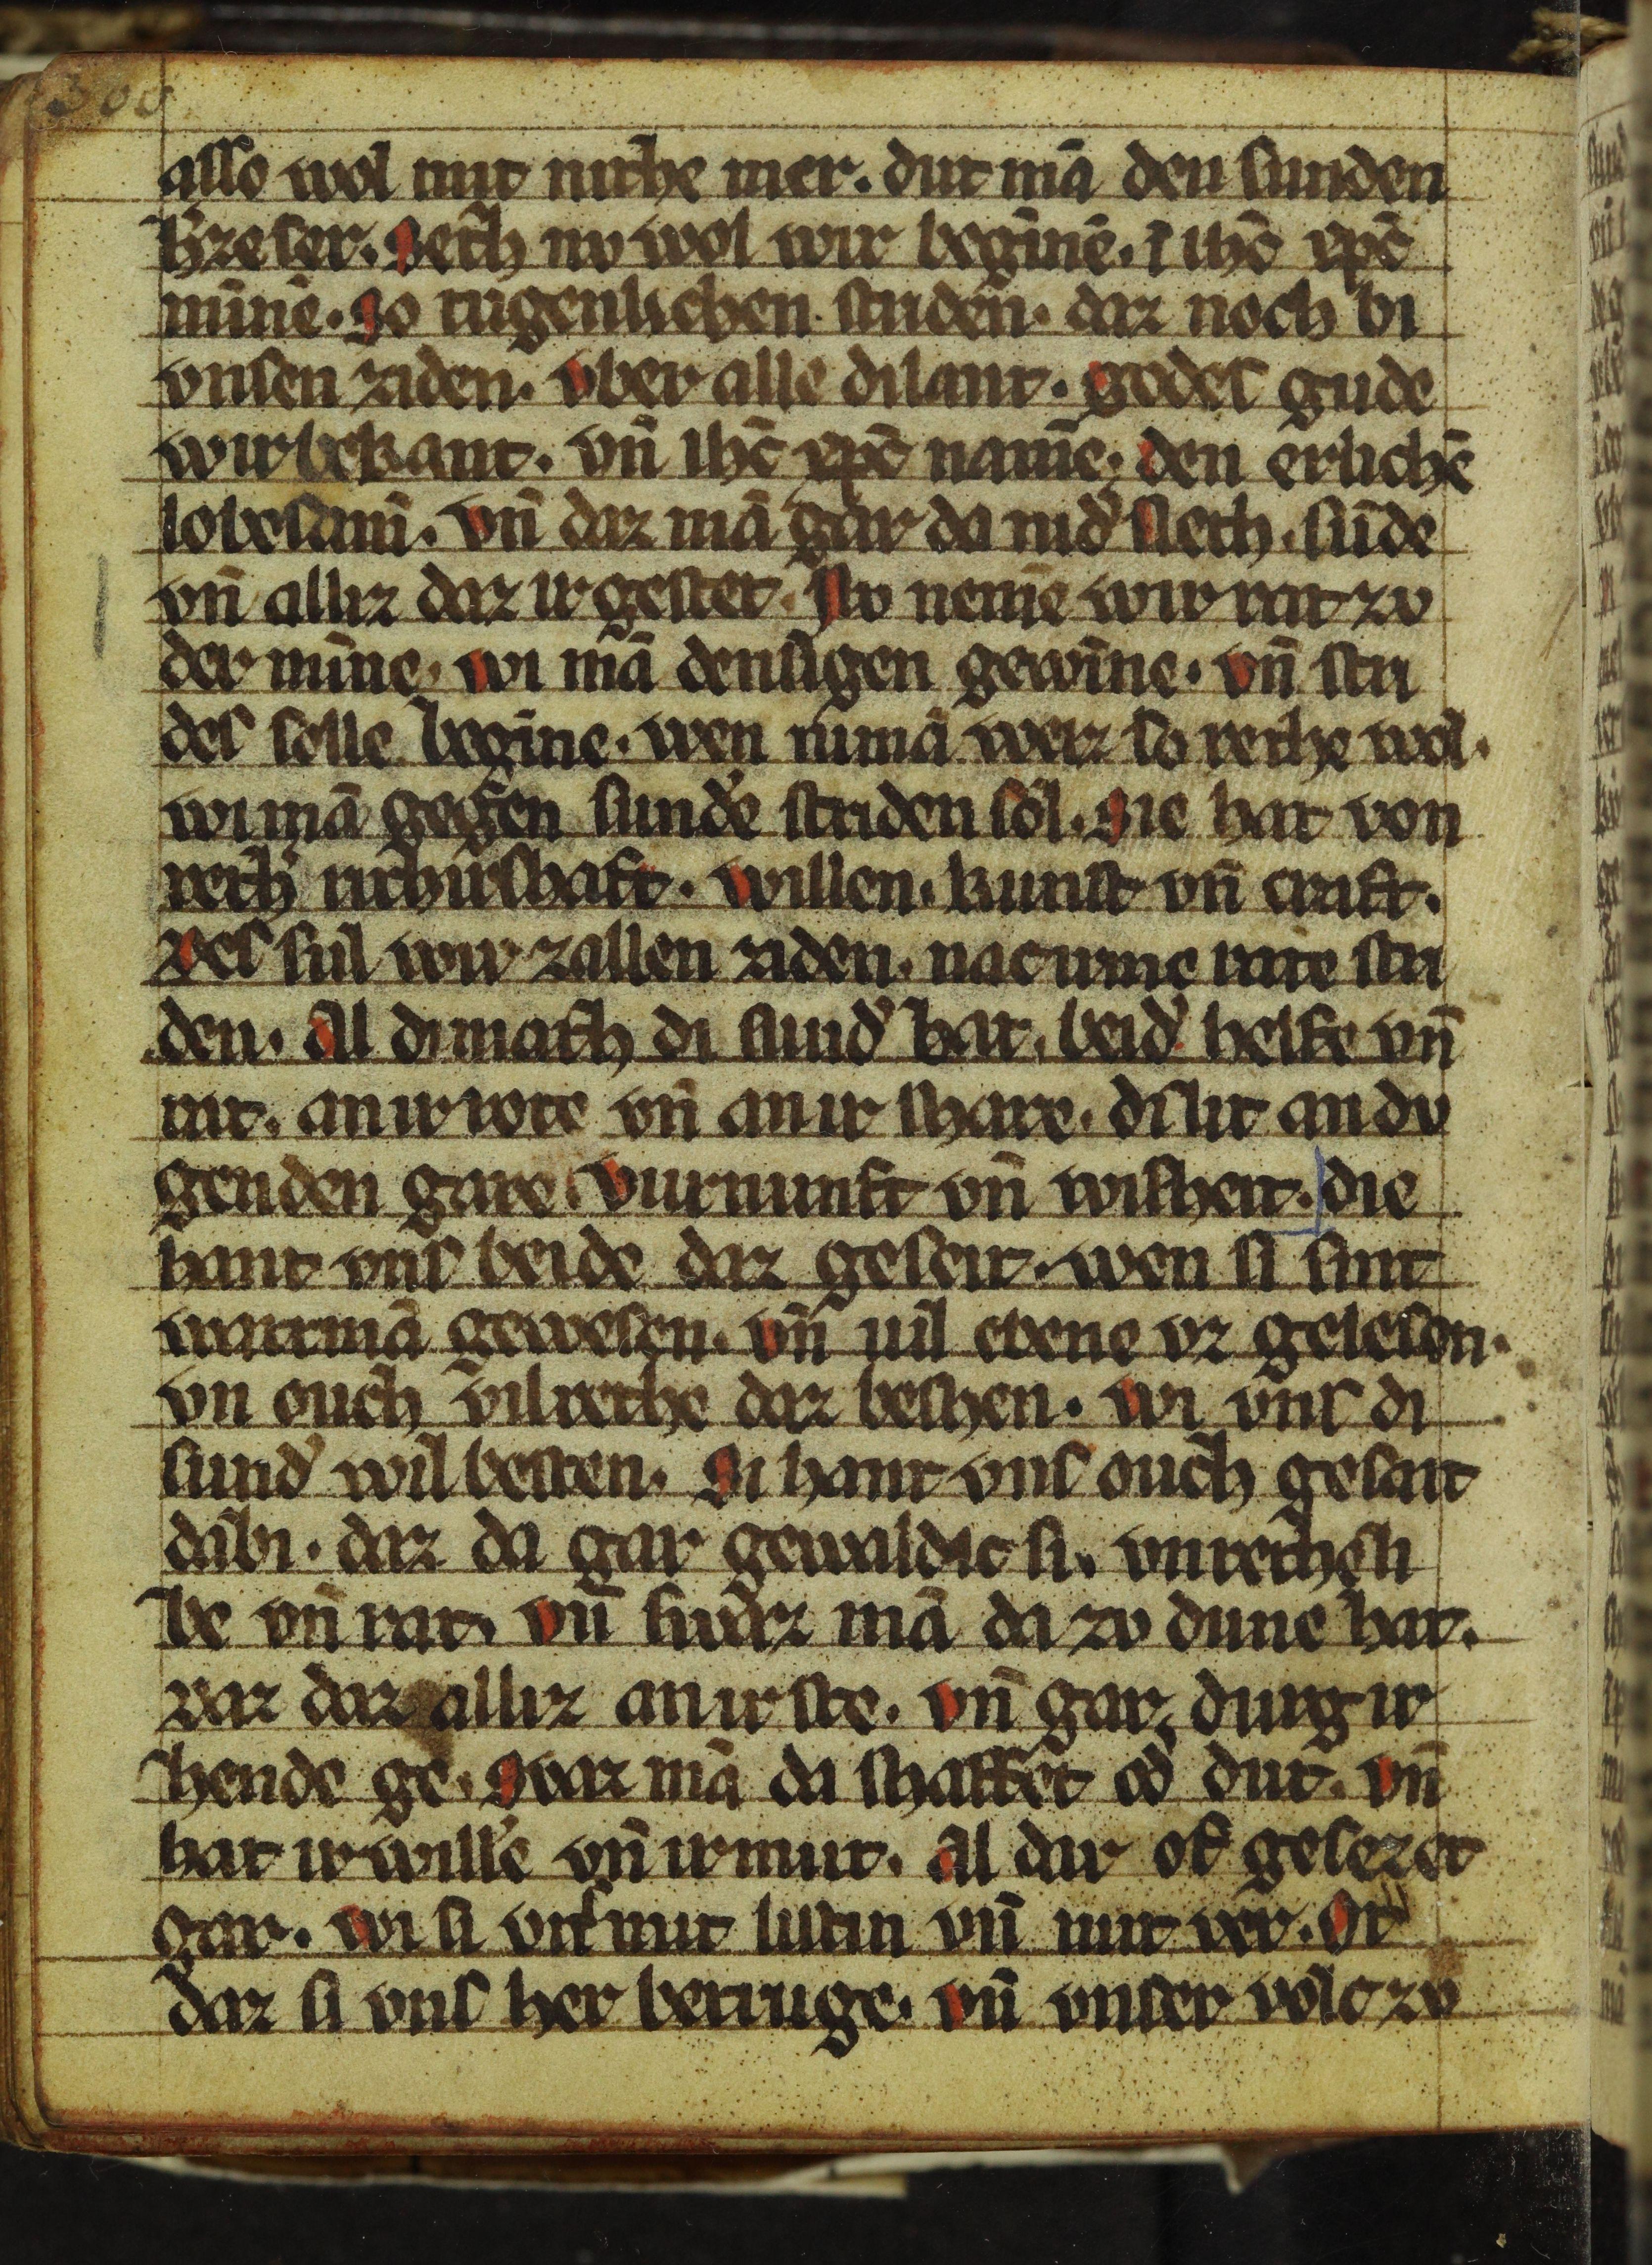 300
also wol mit nithe mer. dut mā den sunden
hrˀze ser. Seth nv wol wir beginnē. ī ihc̄ xp̄c
minnē. So tugenlichen striden. daz noch bi
vnsen ziden. Vber alle dilant. Godes gude
wirbekant. vn̄ ihc̄ xp̄c namē. den erlichē
lobesam. Vn̄ daz mā gar da nidˀ sleth. sūde
vn̄ alliz daz ir gestet. Nv nemē wir rat zv
der minne. wi mā densigen gewīne. vn̄ stri
des solle begīne. wen nimā weiz so rethe wol.
wi mā gegen sundˀe striden sol. Sie hat von
reth rithirshaft. Willen. kunst vn̄ craft.
Des sul wir zallen ziden. nac irme rate stri
den. Al dimath di sundˀ hat. beidˀ helfe vn̄
rat. an ir rote vn̄ an ir share. disit an dv
genden gare. Virnunft vn̄ wisheit. die
hant vns beide daz geseit. wen si sint
wartmā gewesen. Vn̄ uil ebene vz gelesen.
vn ouch vilrethe daz besehen. Wi vns di
sundˀ wil besten. Si hant vns ouch gesait
dabi. daz da gar gewaldic si. vnreth li
be vn̄ rat. vn̄ swaz mā da zv dune hat.
Daz daz alliz an ir ste. vn̄ gar durg ir
hende ge. Swaz mā da shaffet odˀ dut. vn̄
hat ir willē vn̄ ir mut. Al dar of gesezet
gar. Wi si vns mit listin vn̄ mit ver. Or
daz si vns her betruge. vn̄ vnser volc zv